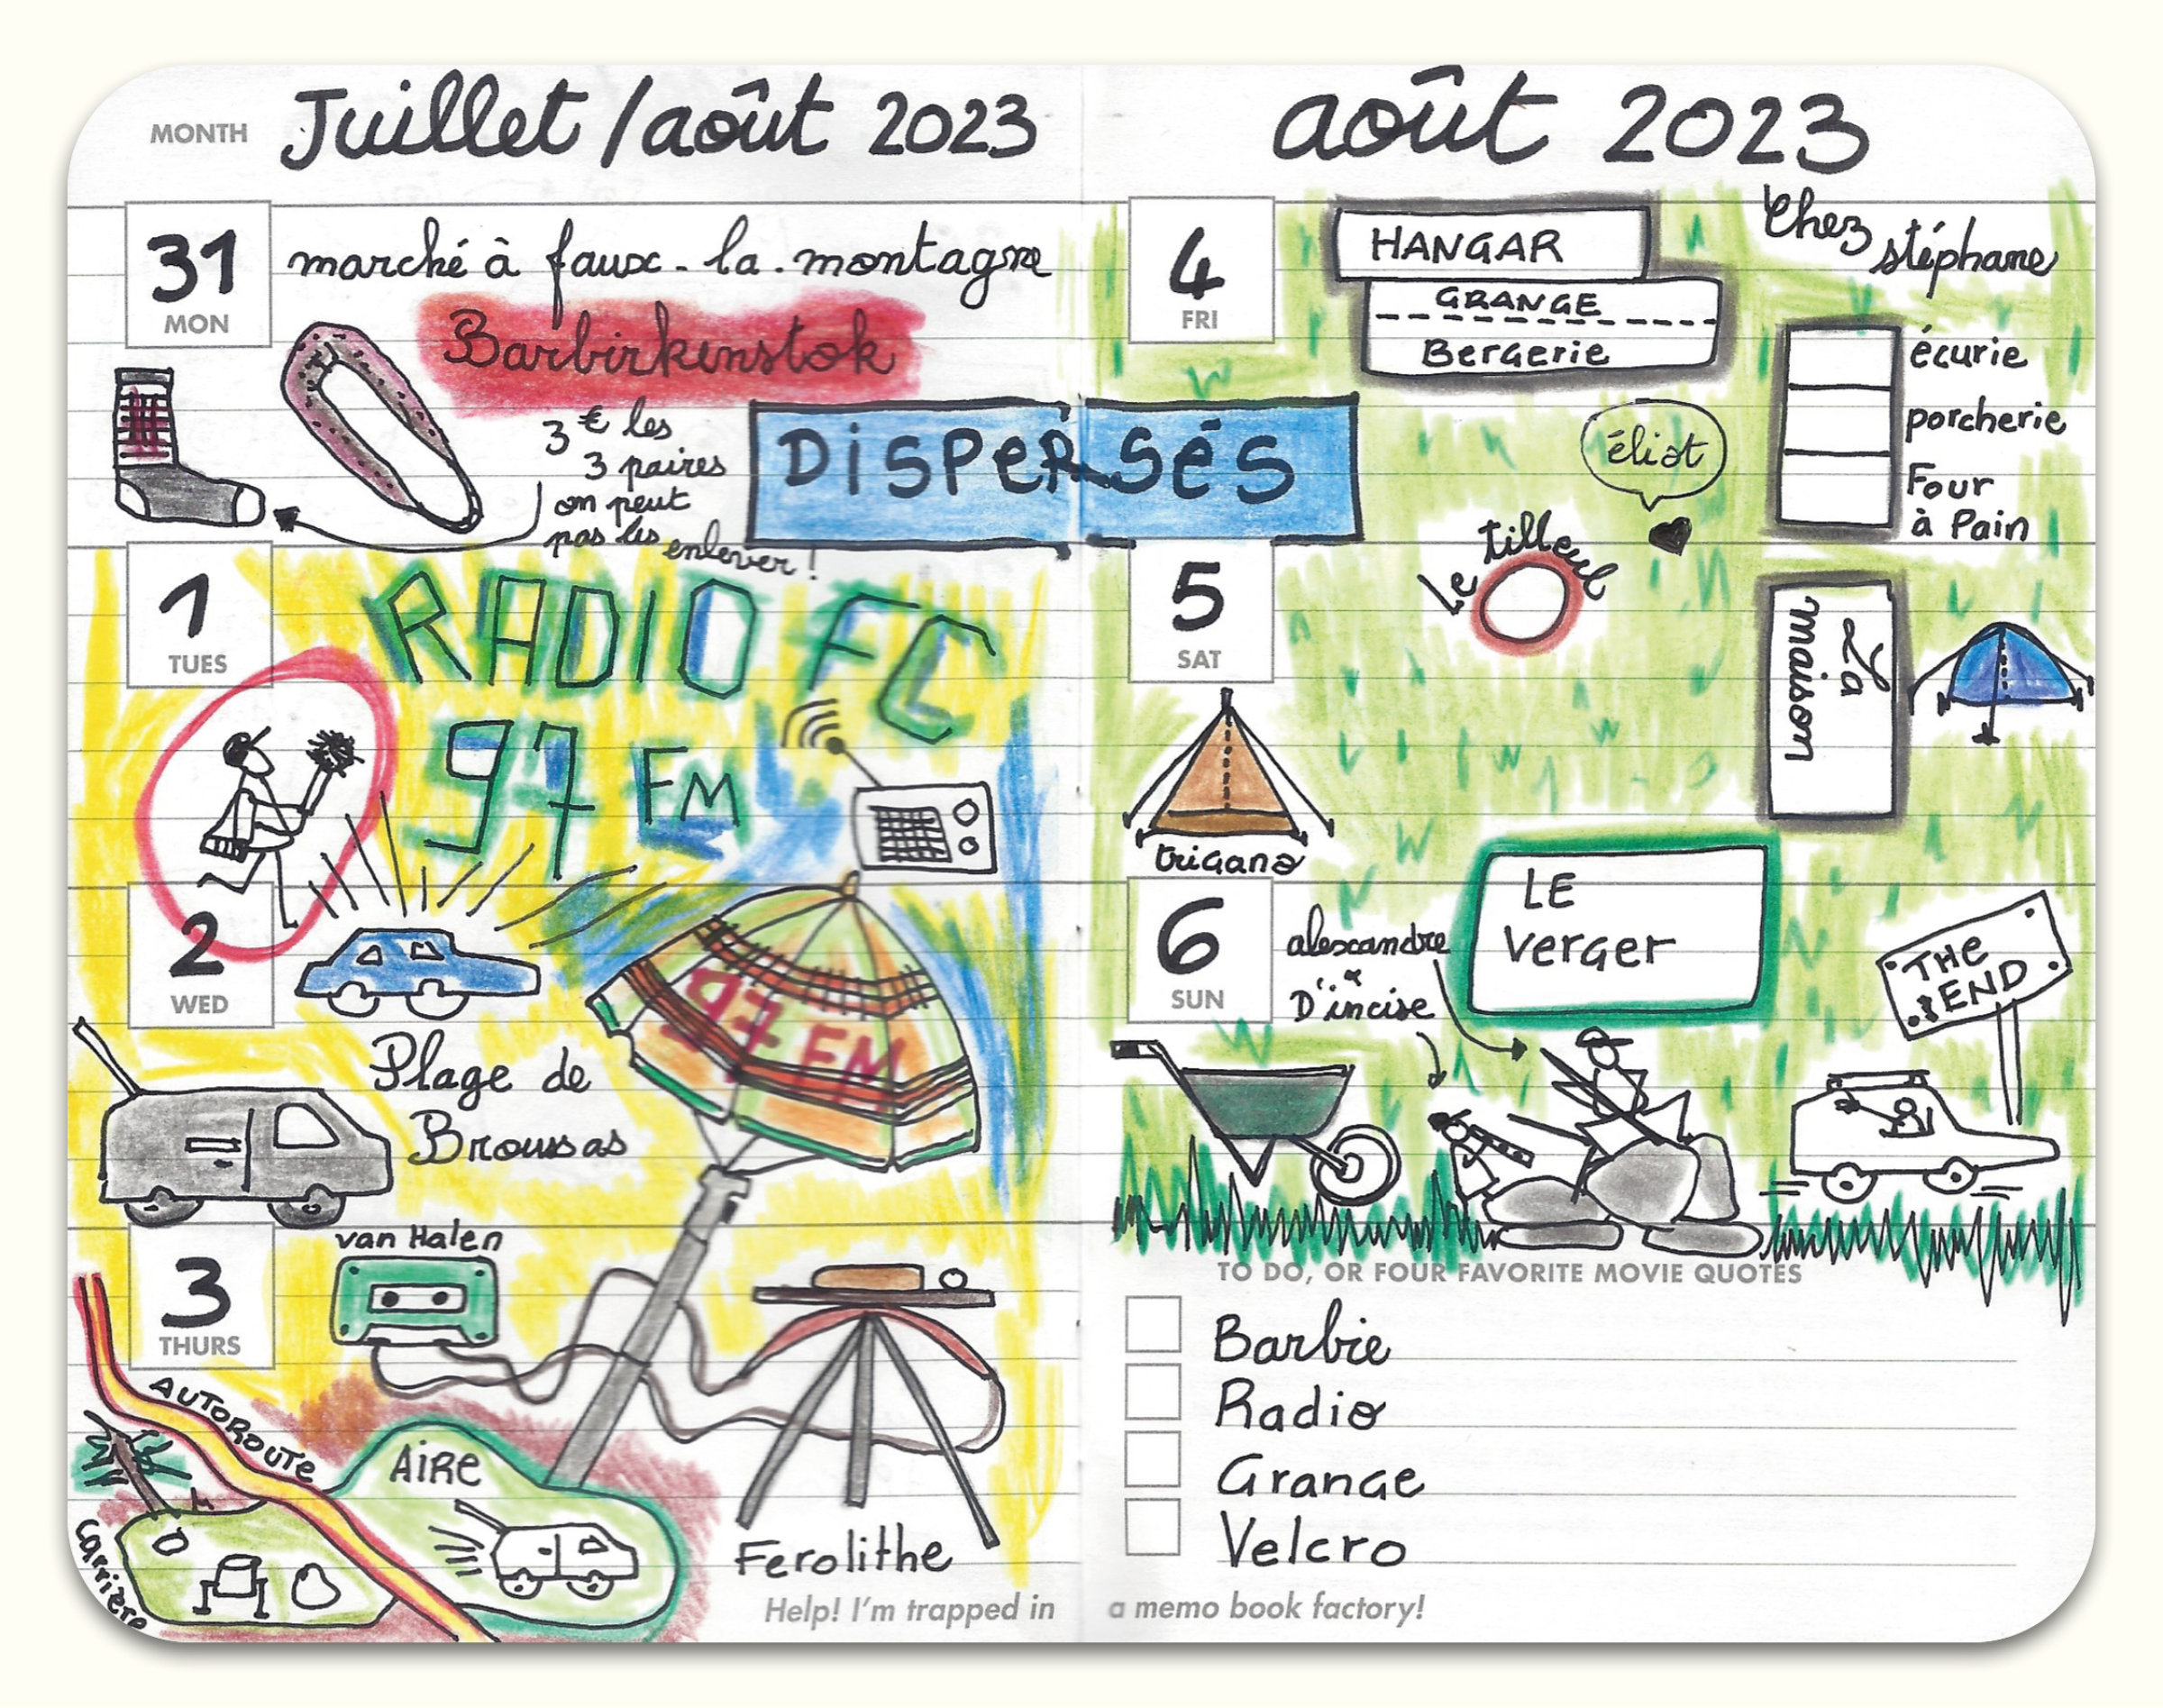 MONTH Juillet/août 2023
31
MON
marché à faux-la-montagne
Barbirkenstok
3€ les
3 paires
on peut
pas les enlever!
DISPERSÉS
1
TUES
RADIO FC
97 FM
2
WED
97 FM
Plage de
Broussas
3
THURS
van Halen
AUTOROUTE
AIRE
carrière
Ferolithe
Help! I'm trapped in
août 2023
4
FRI
HANGAR
GRANGE
Bergerie
Chez stéphane
écurie
porcherie
Four
à Pain
éliot
Le tilleul
5
SAT
La
maison
trigano
6
SUN
alexandre
D'incise
LE
Verger
THE
END
TO DO, OR FOUR FAVORITE MOVIE QUOTES
Barbie
Radio
Grange
Velcro
a memo book factory!